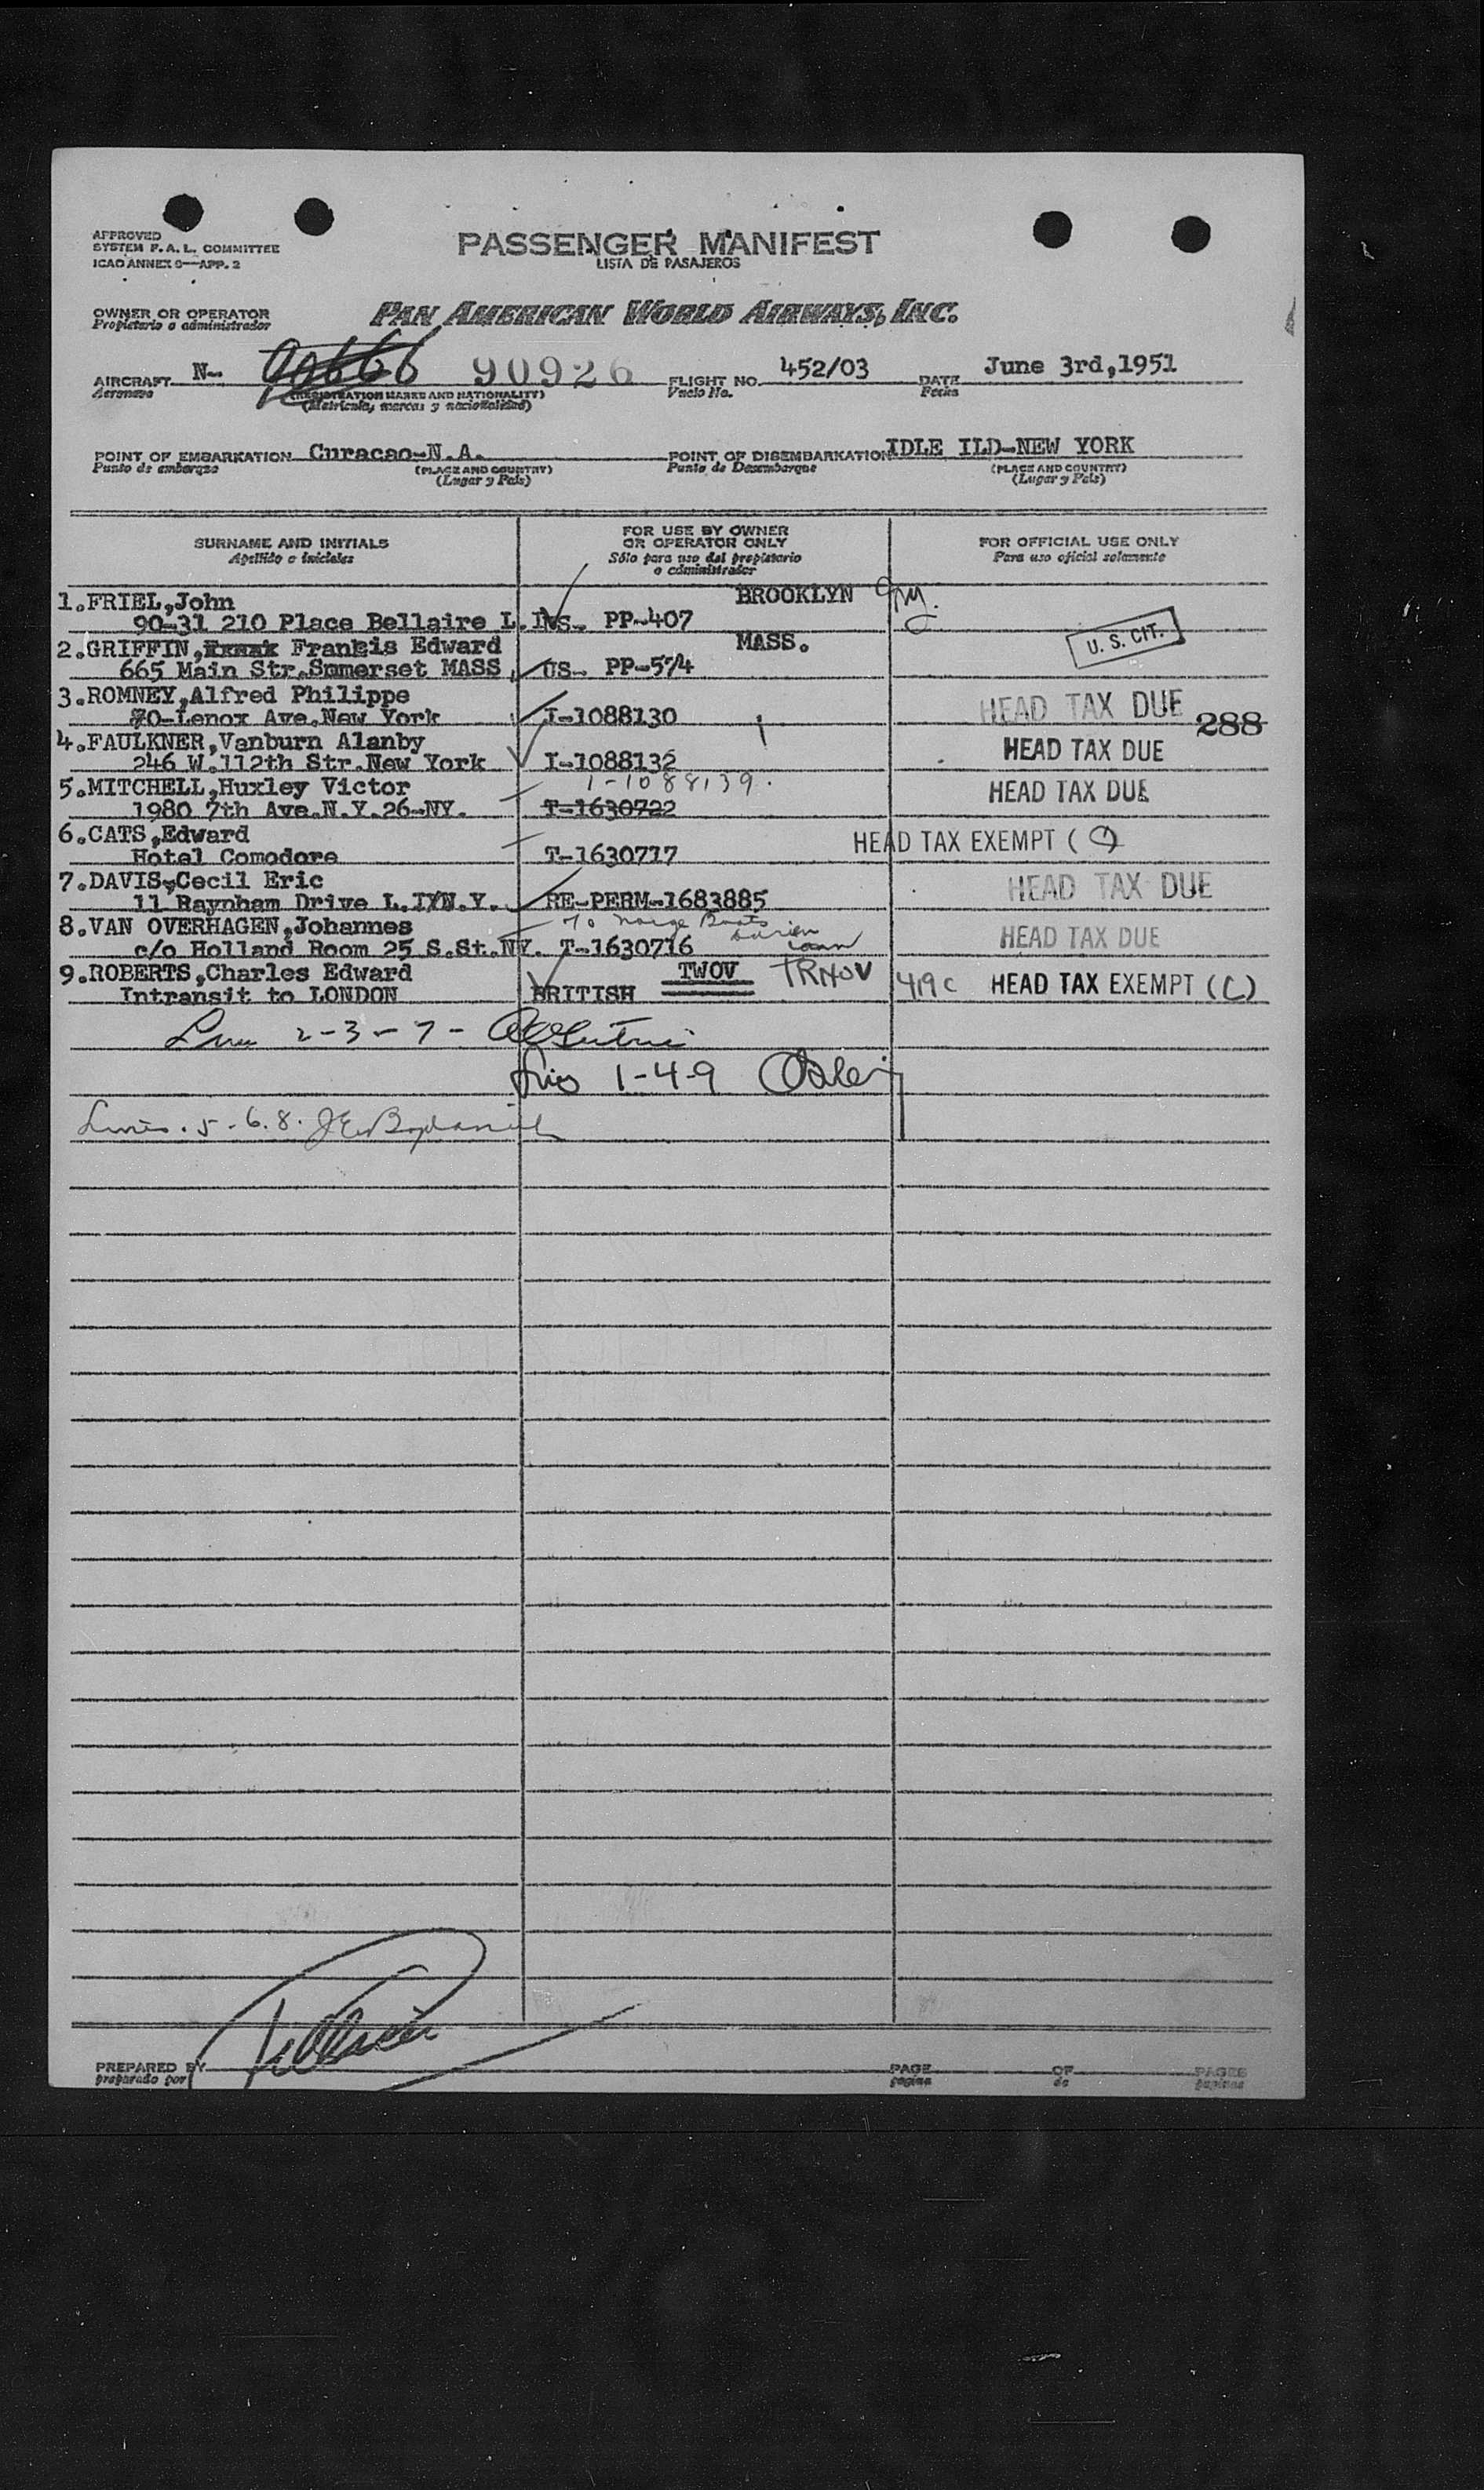 APPROVED
SYSTEM F.A.L. COMMITTEE
ICAO ANNEX 9—APP. 2
PASSENGER MANIFEST
LISTA DE PASAJEROS
OWNER OR OPERATOR
Propietario o administrador
PAN AMERICAN WORLD AIRWAYS, INC.
AIRCRAFT N- 90926 FLIGHT NO. 452/03 DATE June 3rd,1951
Aeronave (REGISTRATION MARKS AND NATIONALITY) Vuelo No. Fecha
(Matrícula, marcas y nacionalidad)
POINT OF EMBARKATION Curacao-N.A. POINT OF DISEMBARKATION IDLE ILD-NEW YORK
Punto de embarque (PLACE AND COUNTRY) Punto de Desembarque (PLACE AND COUNTRY)
(Lugar y País) (Lugar y País)
SURNAME AND INITIALS FOR USE BY OWNER OR OPERATOR ONLY FOR OFFICIAL USE ONLY
Apellido e iniciales Sólo para uso del propietario o administrador Para uso oficial solamente
1.FRIEL,John BROOKLYN NY.
90-31 210 Place Bellaire L.I. US- PP-407
2.GRIFFIN, Francis Edward MASS. U. S. CIT.
665 Main Str.Sommerset MASS. US- PP-574
3.ROMNEY,Alfred Philippe HEAD TAX DUE 288
70-Lenox Ave.New York I-1088130
4.FAULKNER,Vanburn Alanby HEAD TAX DUE
246 W.112th Str.New York I-1088132
5.MITCHELL,Huxley Victor 1-1088139. HEAD TAX DUE
1980 7th Ave.N.Y.26-NY. T-1630722
6.CATS,Edward HEAD TAX EXEMPT (
Hotel Comodore T-1630717
7.DAVIS,Cecil Eric HEAD TAX DUE
11 Raynham Drive L.I/N.Y. RE-PERM-1683885
8.VAN OVERHAGEN,Johannes HEAD TAX DUE
c/o Holland Room 25 S.St.NY. T-1630716
9.ROBERTS,Charles Edward TWOV TRWOV 419c HEAD TAX EXEMPT (C)
Intransit to LONDON BRITISH
2-3-7-
1-4-9
Lines. 5-6.8.
PREPARED BY PAGE OF PAGES
preparado por página de páginas